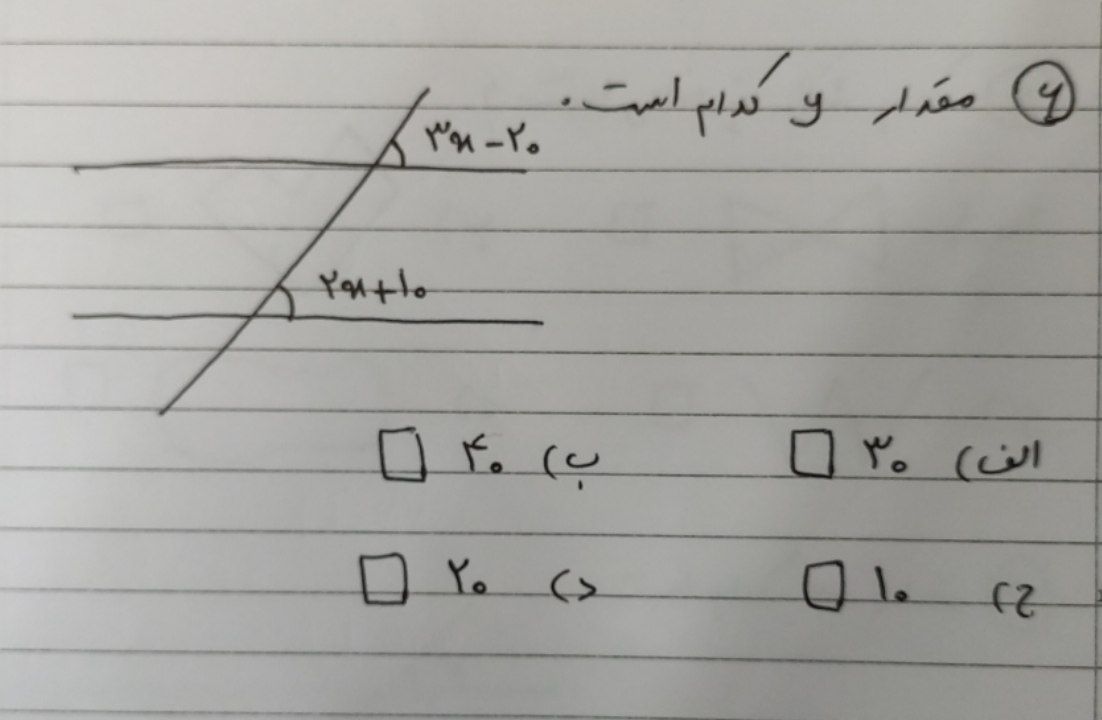 ۶ مقدار y کدام است.
۳x-۲۰
۲x+۱۰
الف) ۳۰ ب) ۴۰
ج) ۱۰ د) ۲۰